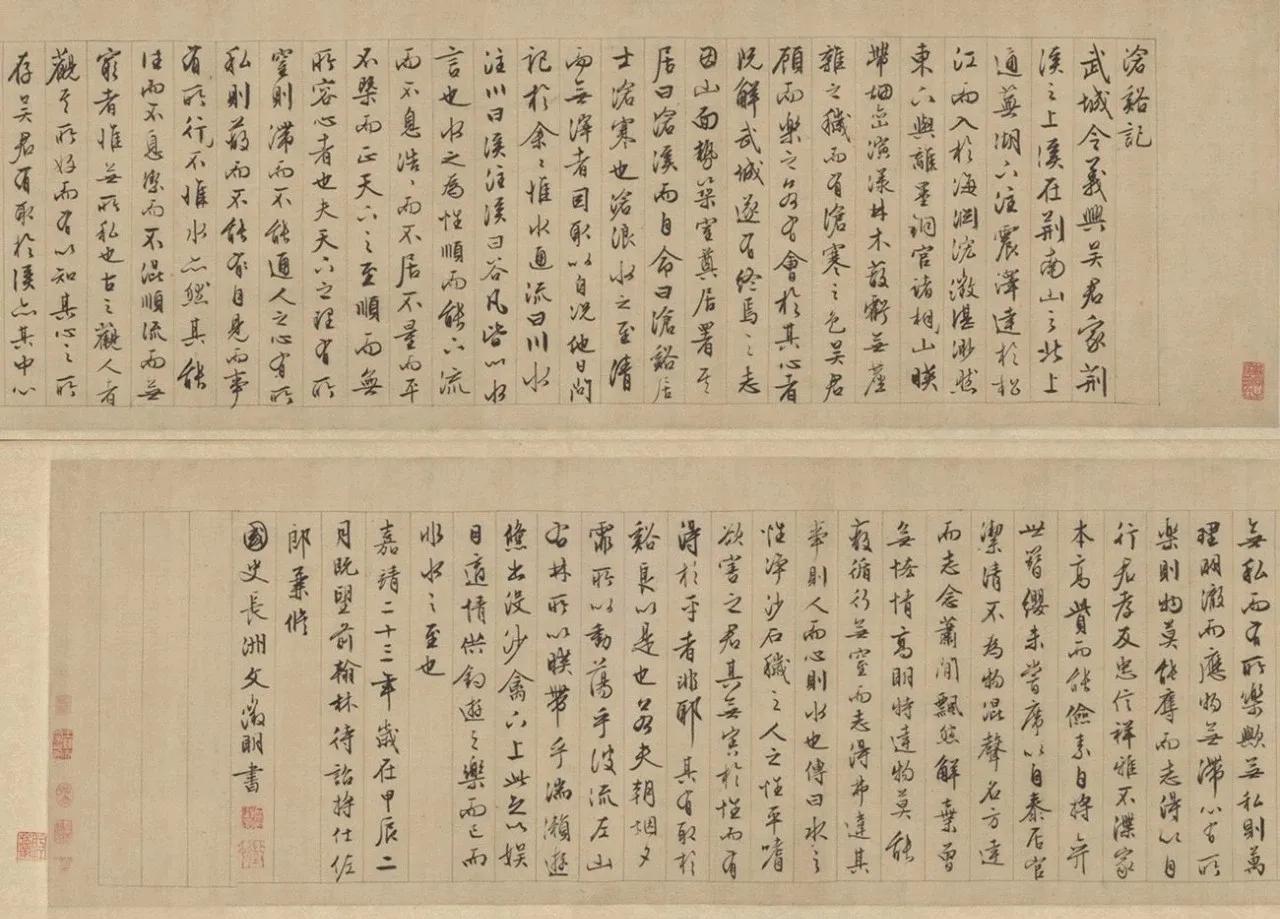 滄谿記
武城令義興吳君家荆
溪之上溪在荆南山之北上
通蕪湖下注震澤達於松
江而入於海淵渟澂湛渺然
東下與離墨銅官諸山映
帶烟巒演漾林木蔽虧無塵
雜之穢而有滄寒之色吳君
顧而樂之若有會於其心者
既解武城遂有終焉之志
因山面勢築室奠居署其
居曰滄溪而自命曰滄谿居
士滄寒也滄浪水之至清
而無滓者因取以自况他日問
記於余余惟水通流曰川水
注川曰溪注溪曰谷凡皆以水
言也水之為性順而能下流
而不息浩浩而不居不量而平
不槩而正天下之至順而無
所容心者也夫天下之理有所
窒則滯而不能通人之心有所
私則蔽而不能有自見而事
有所行不惟水亦然其能
往而不息潔而不混順流而無
窮者惟無所私也古之觀人者
觀其所好而有以知其心之所
存吳君有取於溪亦其中心
無私而有所樂歟無私則萬
理明澈而應物無滯心有所
樂則物莫能奪而志得以自
行君孝友忠信祥雅不漯家
本高貲而能儉素自持
世簪纓未嘗席以自泰居官
潔清不為物混聲名方達
而志念蕭閒飄然解棄曾
無恡情高明特達物莫能
蔽循行無窒而志得弗達其
率則人而心則水也傳曰水之
性淨沙石穢之人之性平嗜
欲害之君其無害於性而有
得於平者非耶其有取於
谿良以是也若夫朝烟夕
霏所以動蕩乎波流左山
右林所以映帶乎湍瀨遊
鯈出沒沙禽下上此足以娛
目適情供釣遊之樂而已而
非水之至也
嘉靖二十三年歲在甲辰二
月既望前翰林待詔將仕佐
郎兼修
國史長洲文徵明書